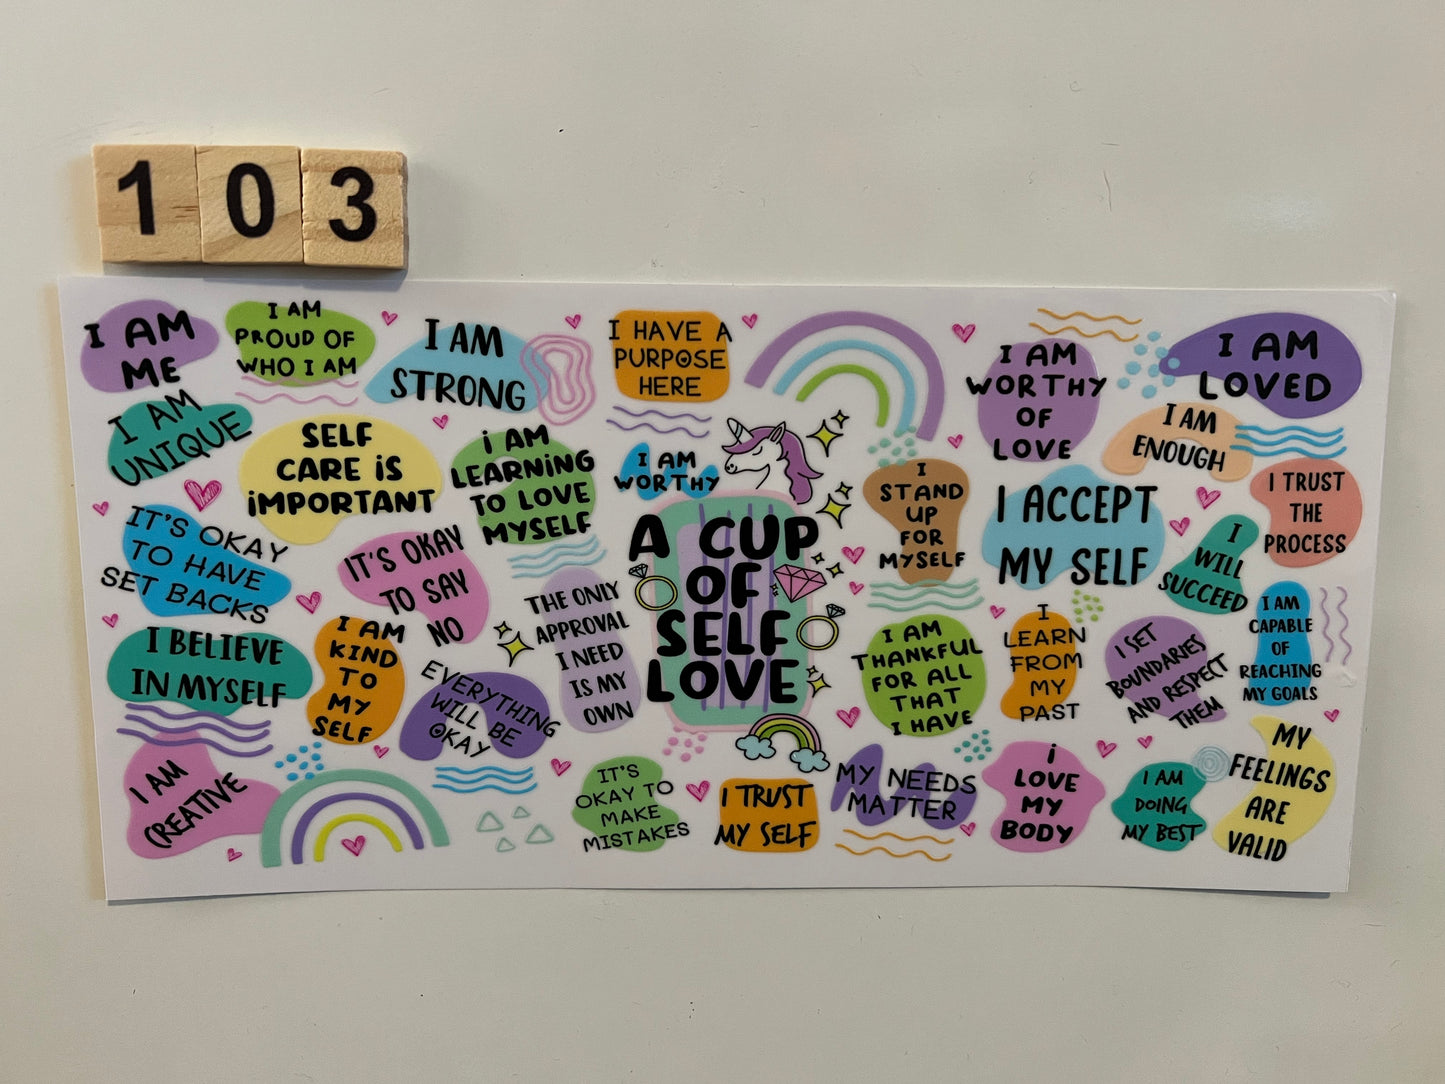 1 0 3
I AM
ME
I AM
PROUD OF
WHO I AM
I AM
STRONG
I HAVE A
PURPOSE
HERE
I AM
WORTHY
OF
LOVE
I AM
LOVED
I AM
UNIQUE
SELF
CARE iS
iMPORTANT
i AM
LEARNiNG
TO LOVE
MYSELF
I AM
WORTHY
I
STAND
UP
FOR
MYSELF
I ACCEPT
MY SELF
I AM
ENOUGH
I TRUST
THE
PROCESS
IT'S OKAY
TO HAVE
SET BACKS
IT'S OKAY
TO SAY
NO
THE ONLY
APPROVAL
I NEED
IS MY
OWN
A CUP
OF
SELF
LOVE
I
WILL
SUCCEED
I BELIEVE
IN MYSELF
I AM
KIND
TO
MY
SELF
EVERYTHING
WILL BE
OKAY
I AM
THANKFUL
FOR ALL
THAT
I HAVE
I
LEARN
FROM
MY
PAST
I SET
BOUNDARIES
AND RESPECT
THEM
I AM
CAPABLE
OF
REACHING
MY GOALS
I AM
CREATIVE
IT'S
OKAY TO
MAKE
MISTAKES
I TRUST
MY SELF
MY NEEDS
MATTER
i
LOVE
MY
BODY
I AM
DOING
MY BEST
MY
FEELINGS
ARE
VALID